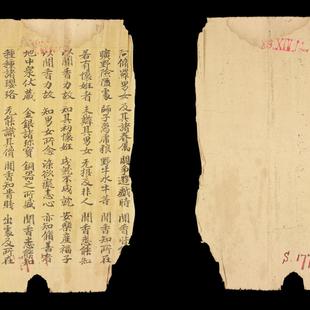 阿脩羅男女 及其諸眷屬 鬪諍遊戲時 聞香
曠野險隘處 師子象虎狼 野牛水牛等 聞香知所在
若有懷妊者 未辯其男女 无根及非人 聞香悉能知
以聞香力故 知其初懷妊 成就不成就 安樂產福子
以聞香力故 知男女所念 染欲癡恚心 亦知脩善者
地中眾伏藏 金銀諸珍寶 銅器之所盛 聞香悉能知
種種諸瓔珞 无能識其價 聞香知貴賤 出處及所在
S. 177